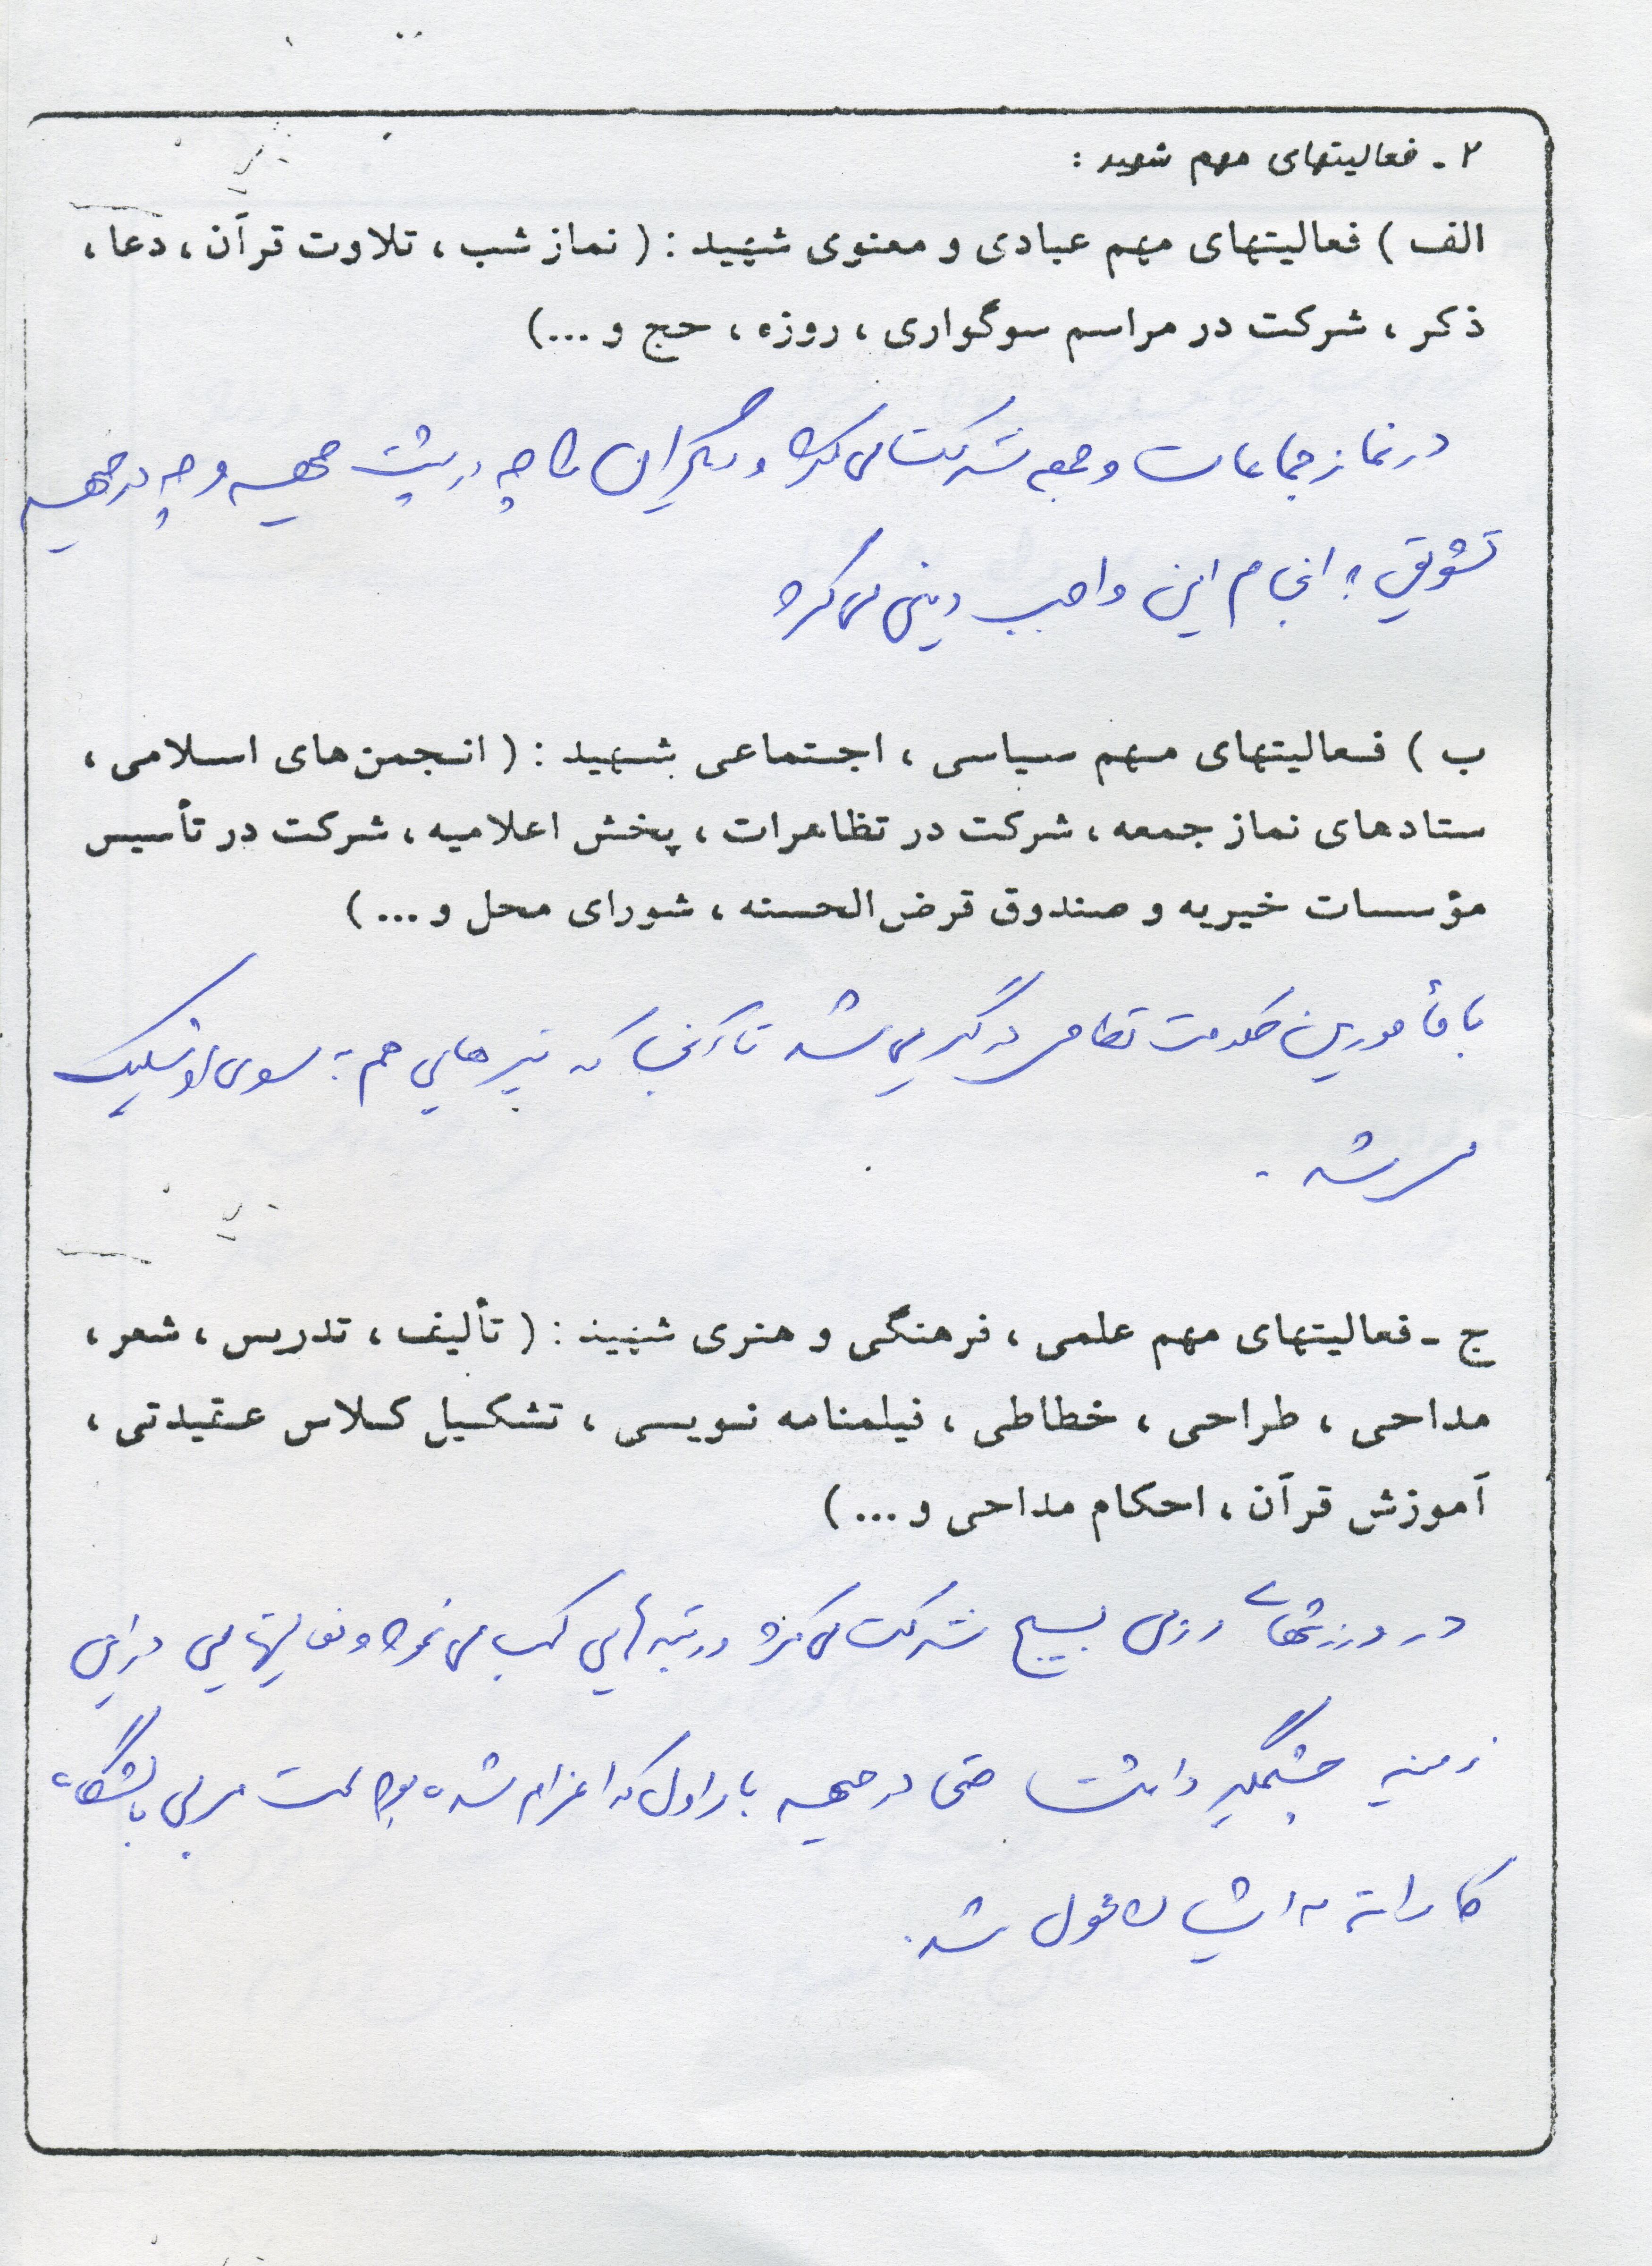 ۲ - فعالیتهای مهم شهید :
الف ) فعالیتهای مهم عبادی و معنوی شهید : ( نماز شب ، تلاوت قرآن ، دعا ،
ذکر ، شرکت در مراسم سوگواری ، روزه ، حج و ...)
در نماز جماعات و جمعه شرکت می کرد و دیگران را چه در پشت جبهه و چه در جبهه
تشویق به انجام این واجب دینی می کرد
ب ) فعالیتهای مهم سیاسی ، اجتماعی شهید : ( انجمن های اسلامی ،
ستادهای نماز جمعه ، شرکت در تظاهرات ، پخش اعلامیه ، شرکت در تأسیس
مؤسسات خیریه و صندوق قرض الحسنه ، شورای محل و ... )
با مأمورین حکومت نظامی درگیر می شد تا آنجا که تیرهایی هم به سوی او شلیک
می شد .
ج - فعالیتهای مهم علمی ، فرهنگی و هنری شهید : ( تألیف ، تدریس ، شعر ،
مداحی ، طراحی ، خطاطی ، فیلمنامه نویسی ، تشکیل کلاس عقیدتی ،
آموزش قرآن ، احکام مداحی و ... )
در ورزشهای رزمی بسیج شرکت می کرد و رتبه هایی کسب می نمود و فعالیتهایی در این
زمینه چشمگیر داشت حتی در جبهه بار اول که اعزام شده بود سمت مربی باشگاه
کاراته به ایشان محول شد.